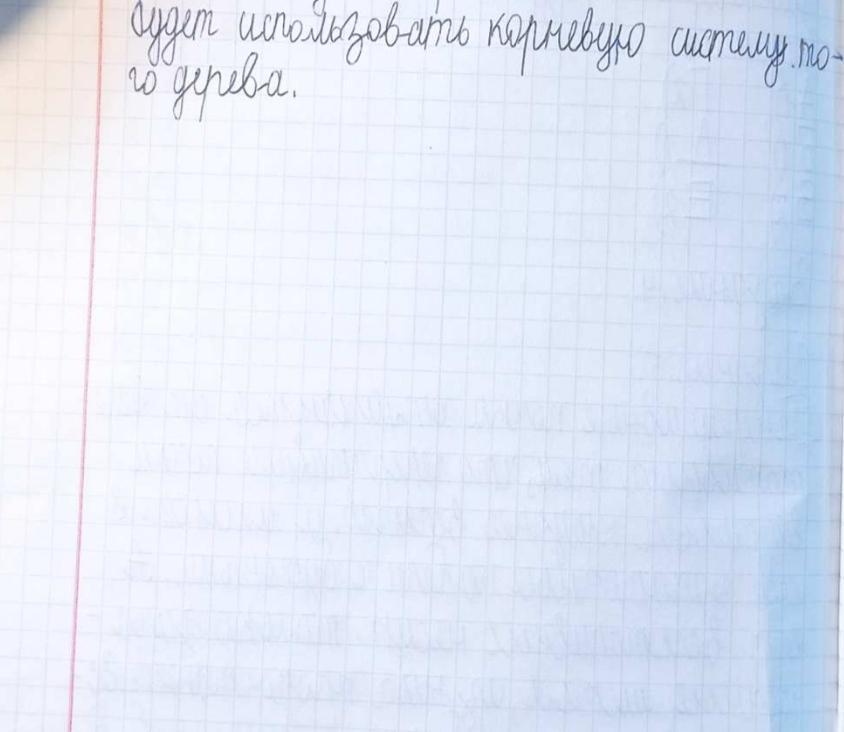 будет использовать корневую систему то-
го дерева.